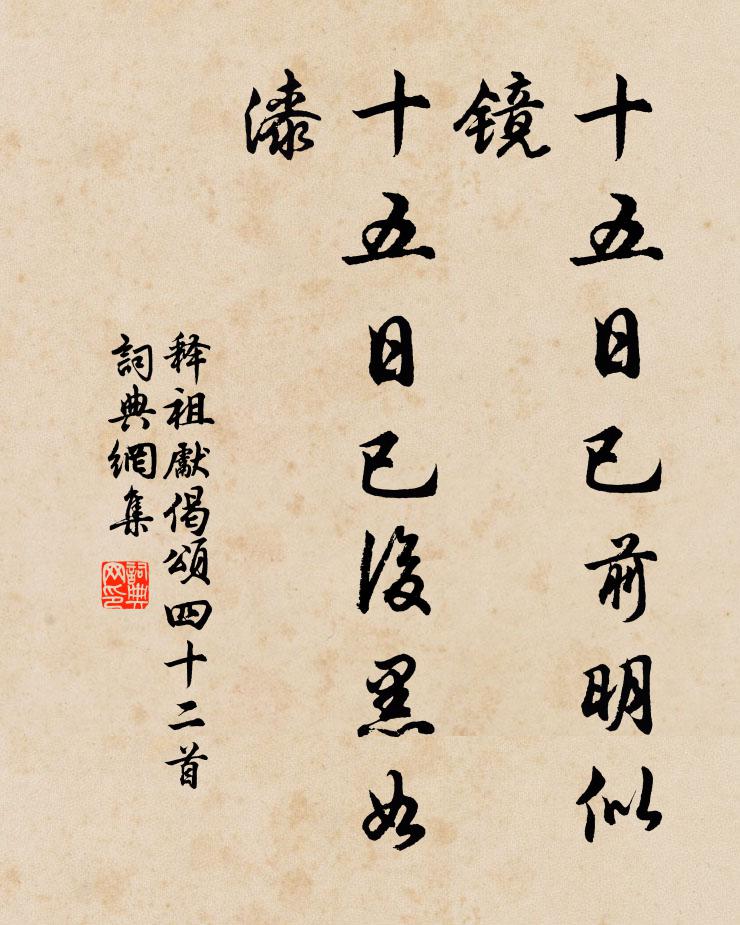 十五日已前明似
镜
十五日已後黑如
漆
释祖獻偈頌四十二首
詞典網集
詞典网印